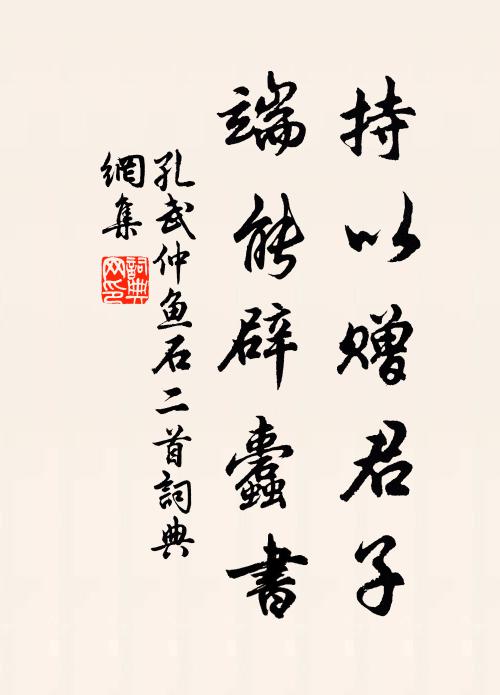 持以赠君子
端能辟蠹書
孔武仲鱼石二首詞典
網集
詞典
网印